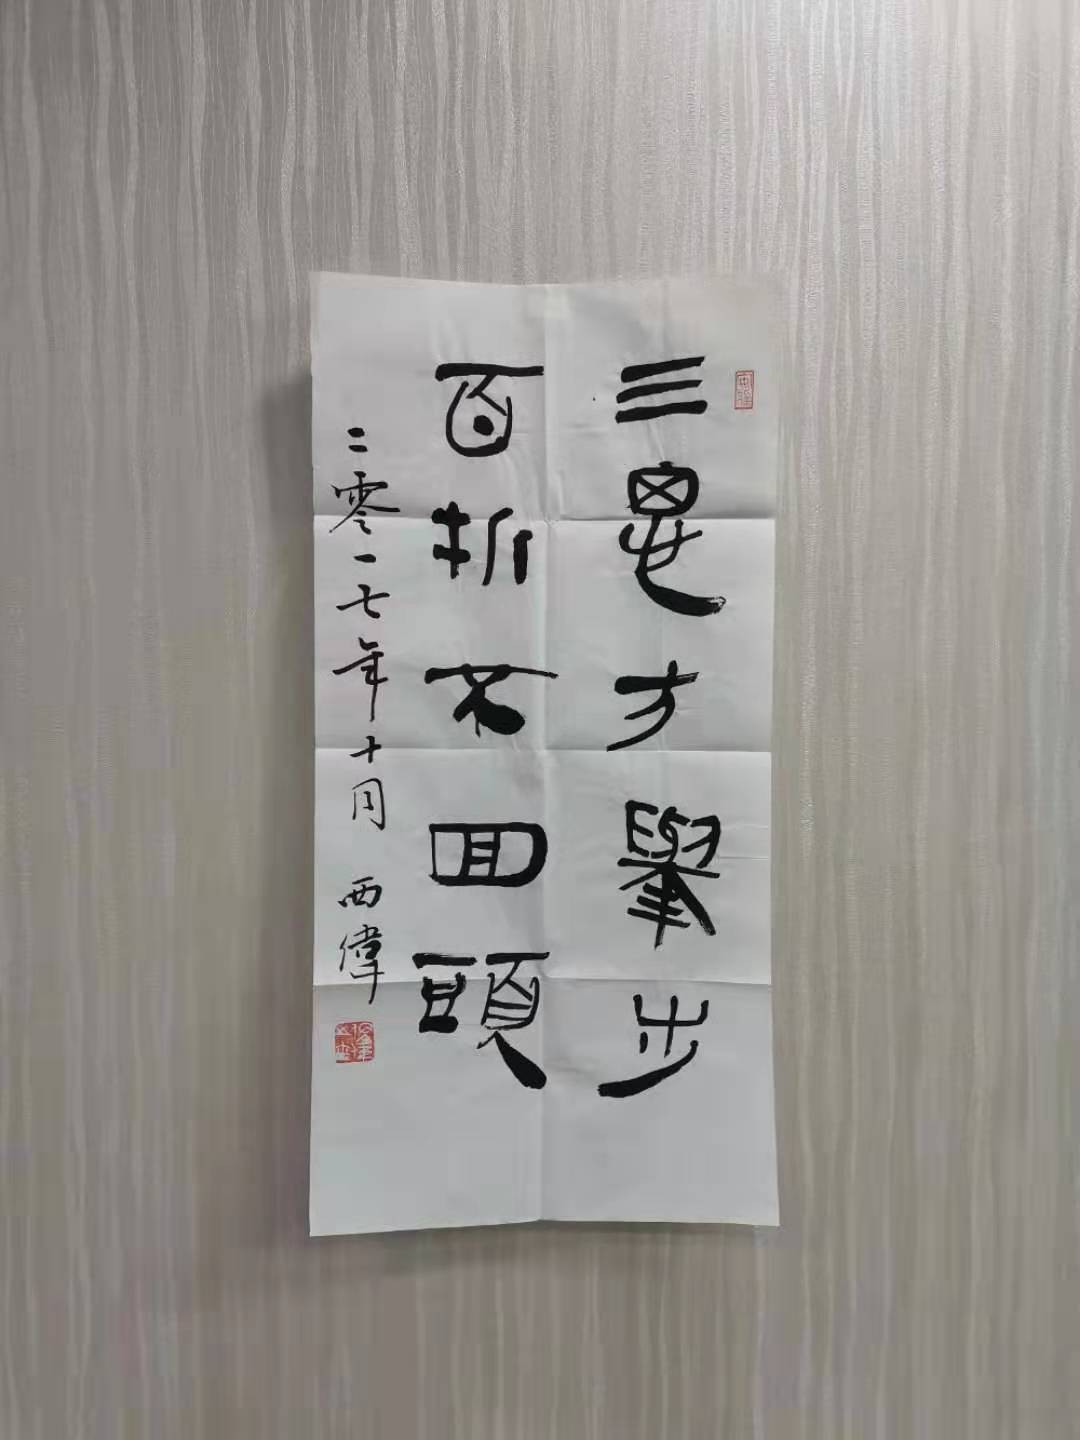 三思方舉步
百折不回頭
二零一七年十月 西偉